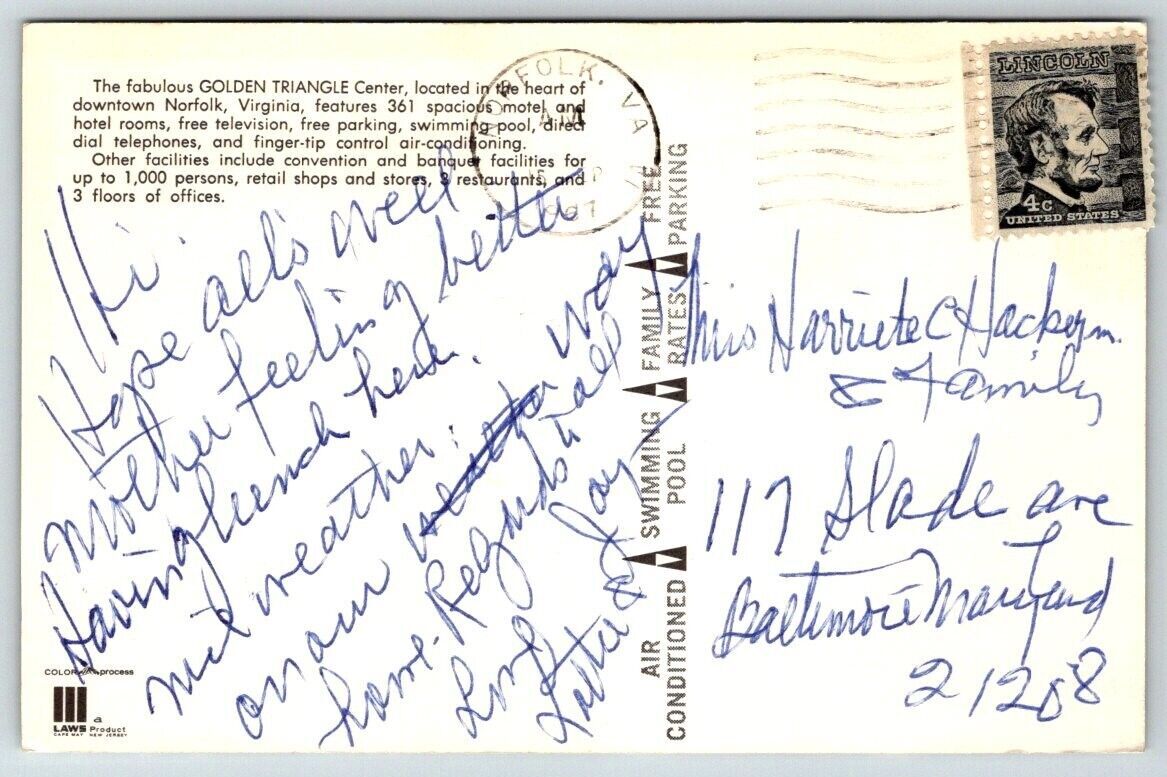 The fabulous GOLDEN TRIANGLE Center, located in the heart of
downtown Norfolk, Virginia, features 361 spacious motel and
hotel rooms, free television, free parking, swimming pool, direct
dial telephones, and finger-tip control air-conditioning.
Other facilities include convention and banquet facilities for
up to 1,000 persons, retail shops and stores, 3 restaurants, and
3 floors of offices.
Hi
Hope all's well
Mother feeling better
Having lunch here.
weather.
on our way
home. Regards to all
Love
& Jay
COLOR process
LAWS a Product
CAPE MAY NEW JERSEY
AIR CONDITIONED
SWIMMING POOL
FAMILY RATES
FREE PARKING
NORFOLK, VA
AM
LINCOLN
4c
UNITED STATES
Miss Harriete C Hackerm.
& Family
117 Slade ave
Baltimore Maryland
21208